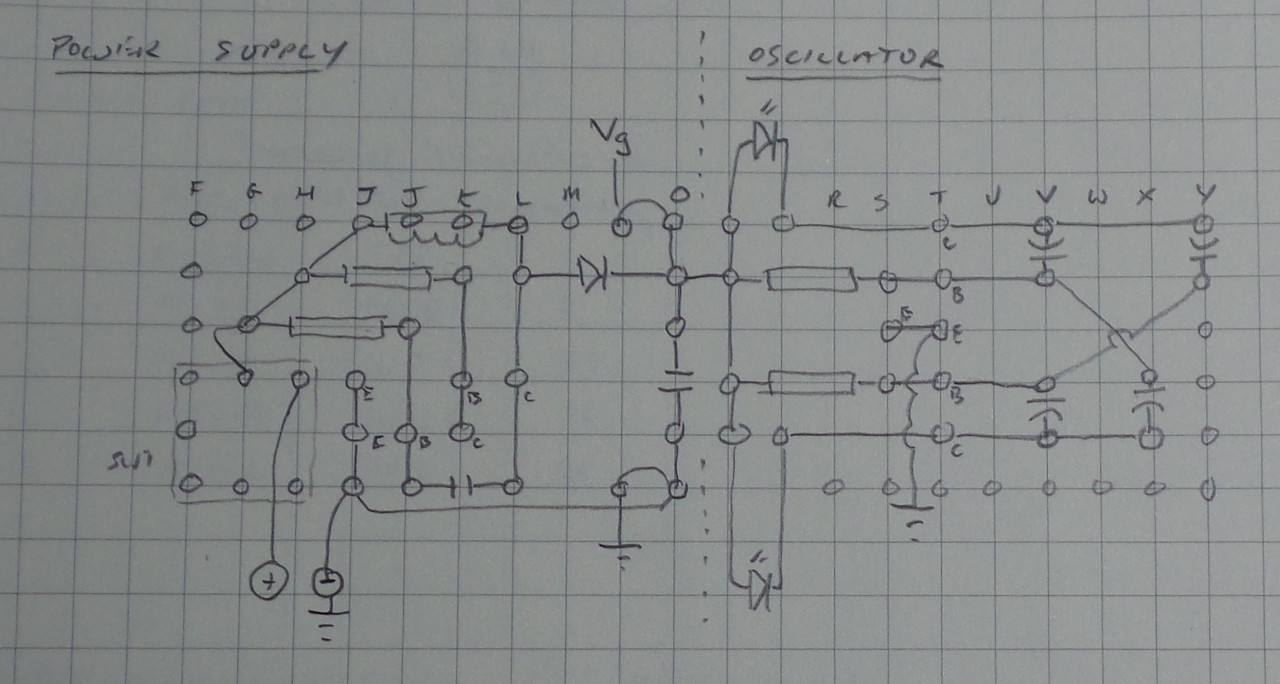 POWER SUPPLY OSCILLATOR
Vg
F G H J J K L M O R S T U V W X Y
C
B
E E
E B C B
E B C C
+ -